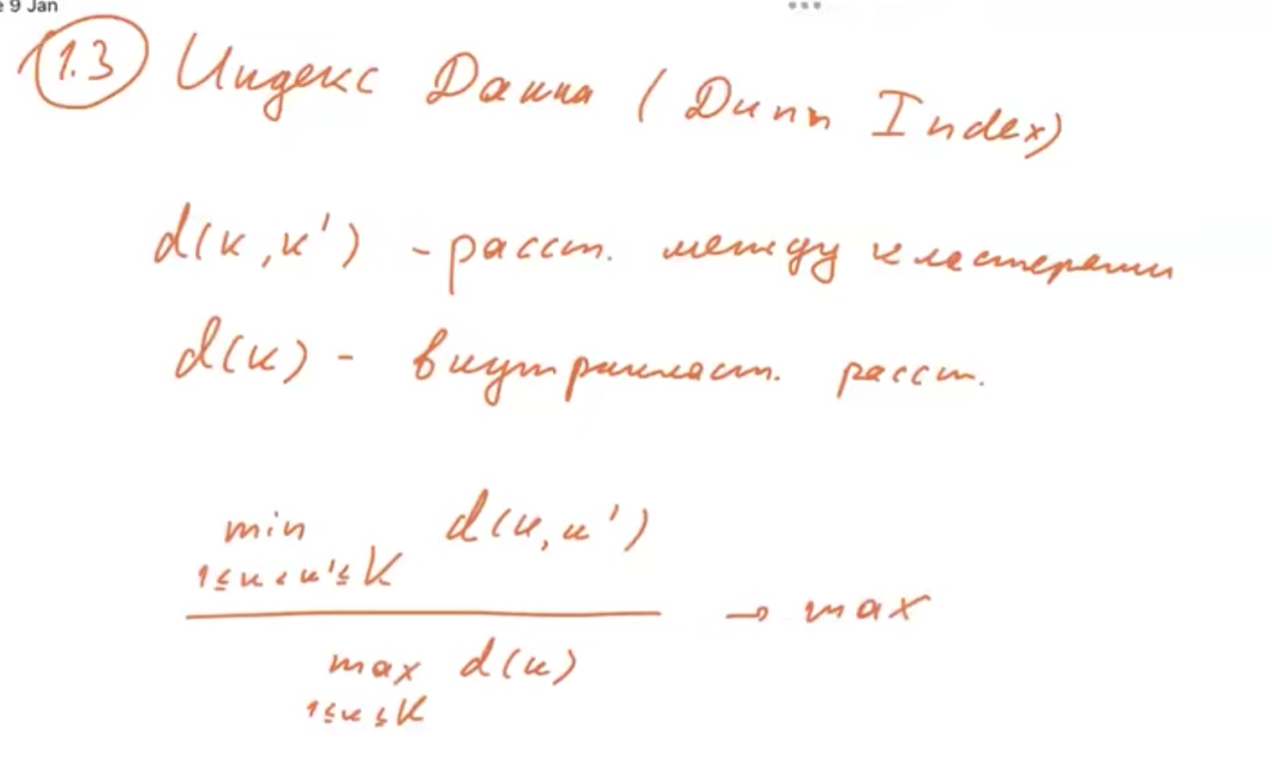 e 9 Jan
1.3 Индекс Данна (Dunn Index)
d(k, k') - расст. между кластерами
d(k) - внутрикласт. расст.
min d(k, k')
1≤k<k'≤K
→ max
max d(k)
1≤k≤K